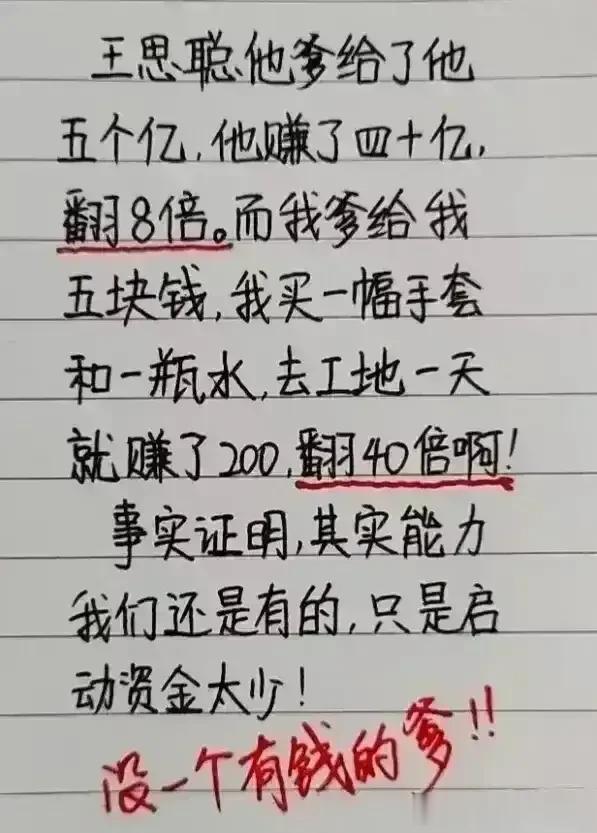 王思聪他爹给了他
五个亿,他赚了四十亿,
翻8倍。而我爹给我
五块钱,我买一幅手套
和一瓶水,去工地一天
就赚了200,翻40倍啊!
事实证明,其实能力
我们还是有的,只是启
动资金太少!
没一个有钱的爹!!